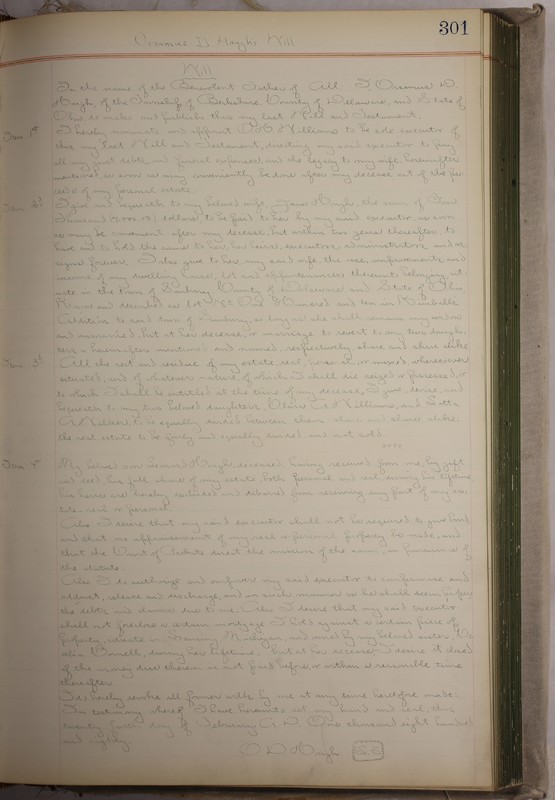 301
Orsamus D. Hough's Will
Will
In the name of the Benevolent Father of All. I Orsamus D.
Hough, of the Township of Berkshire, County of Delaware, and State of
Ohio do make and publish this my last Will and Testament.
Item 1st
I hereby nominate and appoint Williams to be sole executor of
this my last Will and Testament, directing my said executor to pay
all my just debts, and funeral expenses, and the legacy to my wife, hereinafter
mentioned, as soon as may conveniently be done after my decease out of the pro-
ceeds of my personal estate.
Item 2d
I give and bequeath to my beloved wife, Jane Hough, the sum of
Thousand dollars to be paid to her by my said executor, as soon
as may be convenient after my decease, but within two years thereafter, to
have and to hold the same to her, her heirs, executors, administrators and as-
signs forever. I also give to her my said wife, the use, improvements and
income of my dwelling house, lot and appurtenances thereunto belonging, sit-
uate in the town of Sunbury, County of Delaware and State of Ohio
Known and described as lot No. One Hundred and ten in
Addition to said town of Sunbury, so long as she shall remain my widow
and unmarried, but at her decease, or marriage to revert to my two daugh-
ters hereinafter mentioned and named, respectively share and share alike
Item 3d
All the rest and residue of my estate, real, personal, or mixed, wheresoever
situated, and of whatever nature, of which I shall die seized or possessed, or
to which I shall be entitled at the time of my decease, I give, devise, and
bequeath to my two beloved daughters, Williams, and
to be equally divided between them share and share alike:
the real estate to be fairly and equally divided and not sold.
Item 4
My beloved son Leonard Hough, deceased, having received from me, by gift
and deed his full share of my estate, both personal and real, during his lifetime
his heirs are hereby excluded and debarred from receiving any part of my es-
tate real or personal.
Also I desire that my said executor shall not be required to give bond
and that no appraisement of my real or personal property be made, and
that the Court of Probate direct the omission of the same, in pursuance of
the statute.
Also I do authorize and empower my said executor to compromise and
adjust, release and discharge, and in such manner as he shall deem proper
the debts and claims due to me. Also I desire that my said executor
shall not foreclose a certain mortgage I hold against a certain piece of
property, situate in Lansing Michigan, and owned by my beloved sister,
during her lifetime, but at her decease I desire it closed
if the money due thereon is not paid before, or within a reasonable time
thereafter.
I do hereby revoke all former wills by me at any time heretofore made:
In testimony whereof I have hereunto set my hand and seal, this
twenty day of February A. D. One thousand eight hundred
and eighty
O D Hough